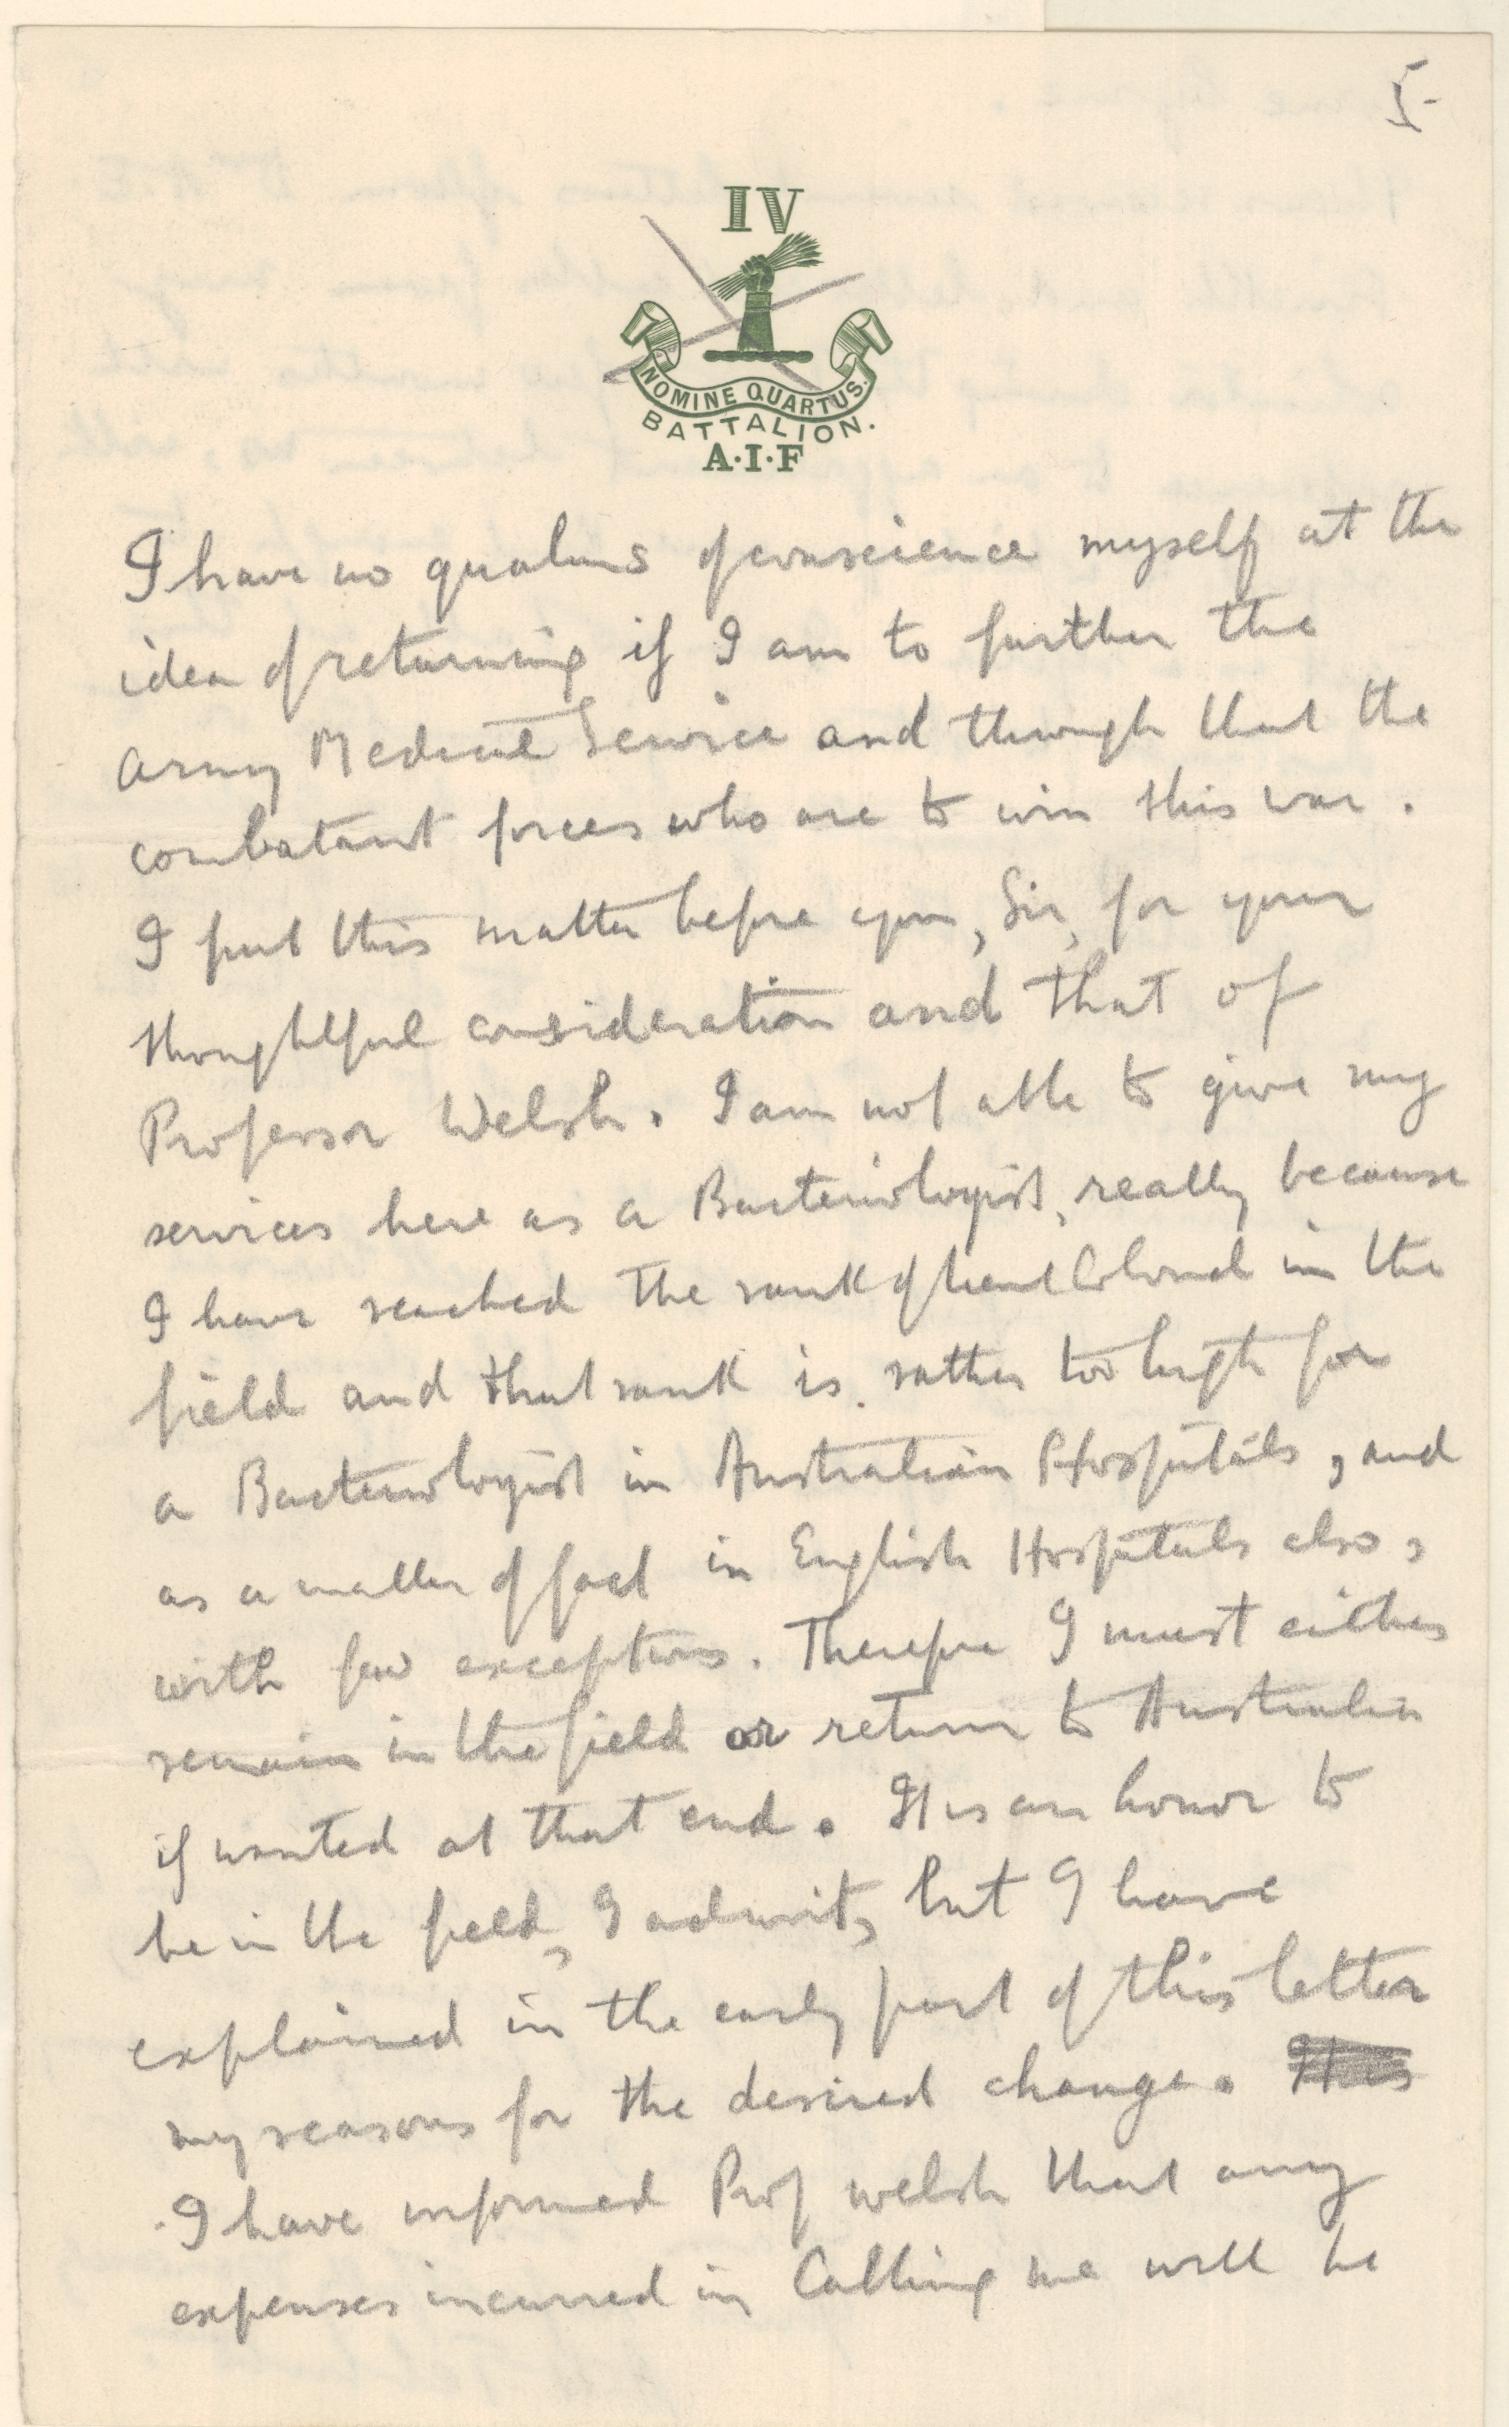 5-
IV
NOMINE QUARTUS.
BATTALION.
A.I.F
I have no qualms of conscience myself at the
idea of returning if I am to further the
Army Medical Service and through that the
combatant forces who are to win this war.
I put this matter before you, Sir, for your
thoughtful consideration and that of
Professor Welsh. I am not able to give my
services here as a Bacteriologist, really because
I have reached the rank of Lieut Colonel in the
field and that rank is rather too high for
a Bacteriologist in Australian Hospitals, and
as a matter of fact in English Hospitals also,
with few exceptions. Therefore I must either
remain in the field or return to Australia
if wanted at that end. It is an honor to
be in the field, I admit, but I have
explained in the early part of this letter
my reasons for the desired change.
I have informed Prof Welsh that any
expenses incurred in Calling me will be